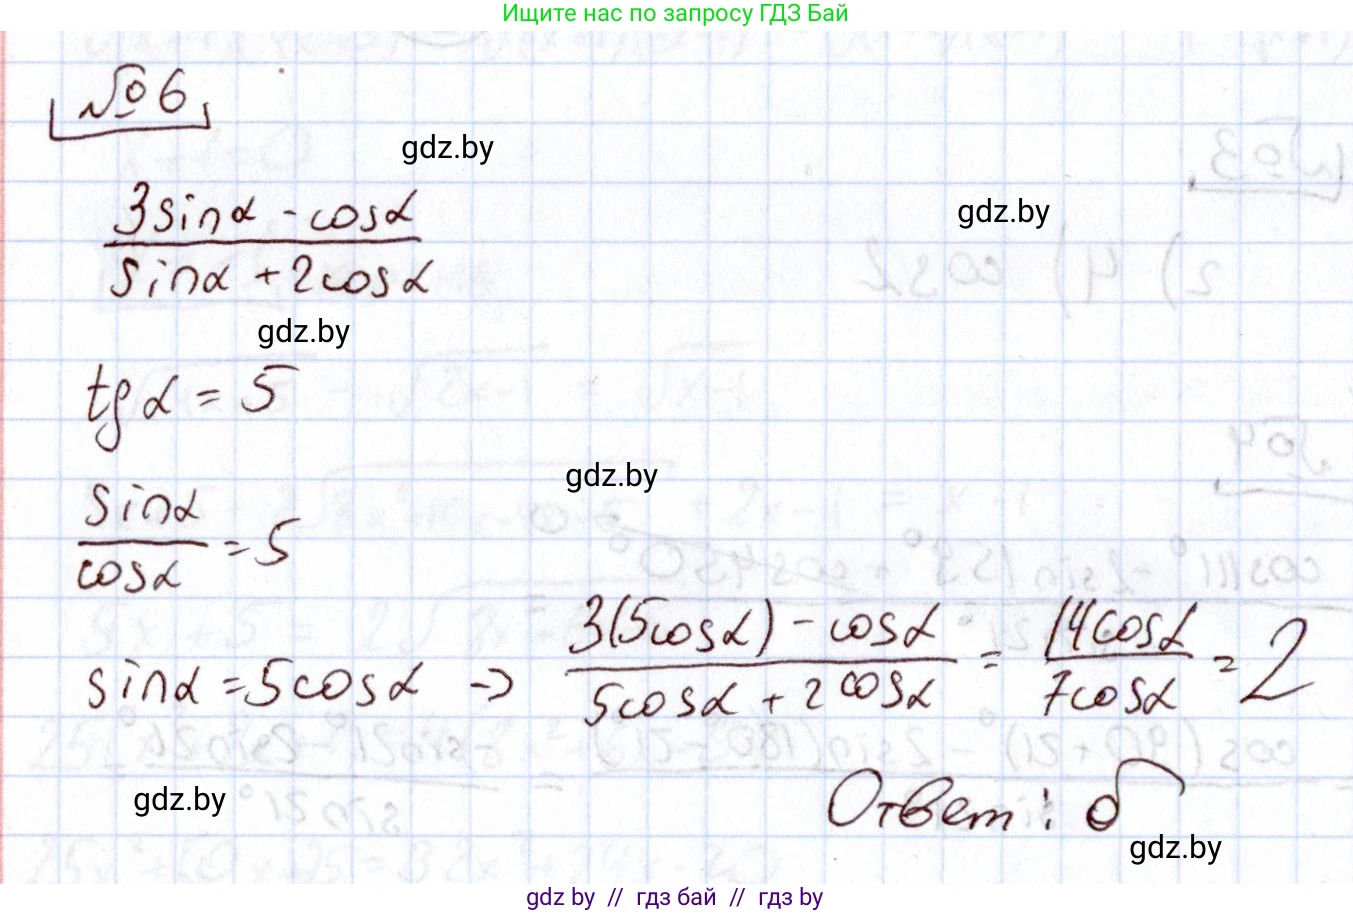 Ищите нас по запросу ГДЗ Бай
№6
gdz.by
gdz.by
3sinα - cosα
sinα + 2cosα
gdz.by
tgα = 5
gdz.by
sinα
cosα = 5
sinα = 5cosα -> 3(5cosα) - cosα / 5cosα + 2cosα = 14cosα / 7cosα = 2
gdz.by
Ответ: б
gdz.by
gdz.by // гдз бай // гдз by